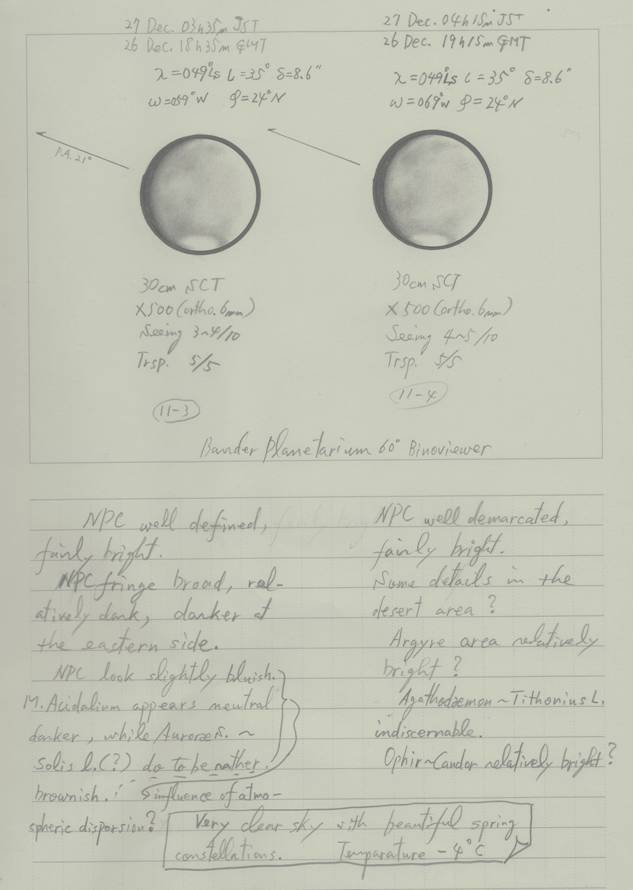 27 Dec. 03h35m JST
26 Dec. 18h35m GMT
λ=049°Ls ι=35° δ=8.6"
ω=059°W φ=24°N
P.A. 21°
30cm SCT
×500 (ortho. 6mm)
Seeing 3~4/10
Trsp. 5/5
11-3
27 Dec. 04h15m JST
26 Dec. 19h15m GMT
λ=049°Ls ι=35° δ=8.6"
ω=069°W φ=24°N
30cm SCT
×500 (ortho. 6mm)
Seeing 4~5/10
Trsp. 5/5
11-4
Baader Planetarium 60° Binoviewer
NPC well defined,
fairly bright.
NPC fringe broad, rel-
atively dark, darker at
the eastern side.
NPC look slightly bluish.
M. Acidalium appears neutral
darker, while Aurorae S. ~
Solis L. (?) do to be rather
brownish. : influence of atmo-
spheric dispersion?
NPC well demarcated,
fairly bright.
Some details in the
desert area?
Argyre area relatively
bright?
Agathodaemon~Tithonius L.
indiscernable.
Ophir~Candor relatively bright?
Very clear sky with beautiful spring
constellations. Temparature -4°C